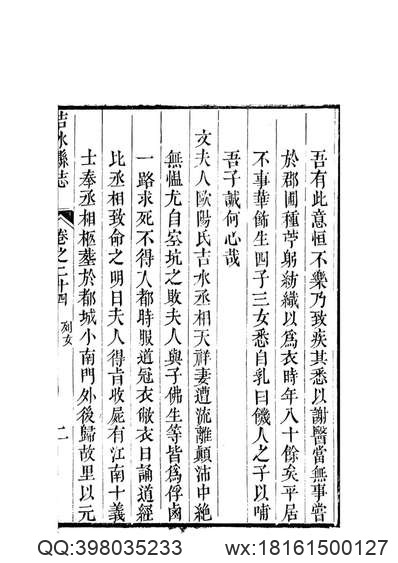 吾有此意恒不樂乃致疾其悉以謝醫當無事嘗
於郡圃種苧躬紡織以爲衣時年八十餘矣平居
不事華飾生四子三女悉自乳曰饑人之子以哺
吾子誠何心哉
文夫人歐陽氏吉水丞相天祥妻遭流離顛沛中絶
無慍尤自空坑之敗夫人與子佛生等皆爲俘鹵
一路求死不得人都時服道冠衣敝衣日誦道經
比丞相致命之明日夫人得㫖收屍有江南十義
士奉丞相柩塟於都城小南門外後歸故里以元
吉水縣志
卷之二十四
列女
二
QQ:398035233
wx:18161500127